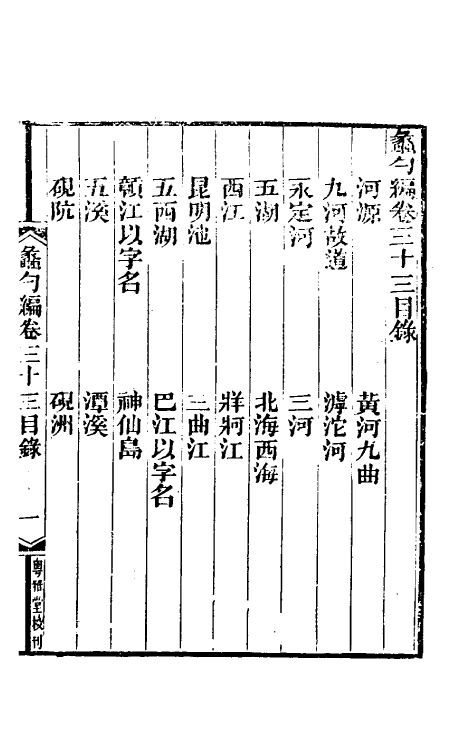 蠡勺編卷三十三目錄
河源　黃河九曲
九河故道　滹沱河
永定河　三河
五湖　北海西海
西江　牂牁江
昆明池　三曲江
五西湖　巴江以字名
贛江以字名　神仙島
五溪　潭溪
硯阬　硯洲
蠡勺編卷三十三目錄　一　粵雅堂校刊